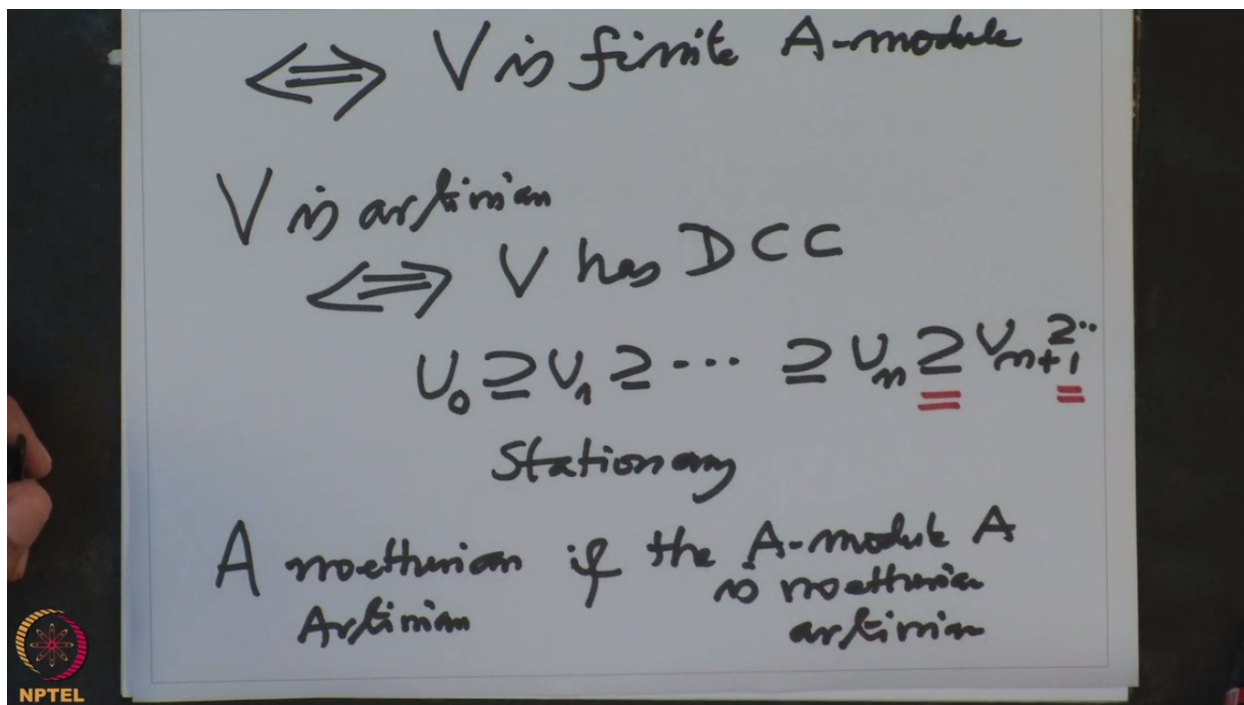 ⟺ V is finite A-module
V is artinian
⟺ V has DCC
U₀ ⊇ U₁ ⊇ ⋯ ⊇ Uₙ ⊇ Uₙ₊₁ ⊇ ‥
= =
Stationary
A noetherian if the A-module A
Artinian is noetherian
artinian
NPTEL